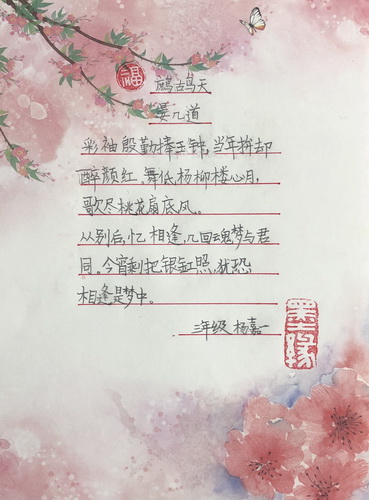 福
鹧鸪天
晏几道
彩袖殷勤捧玉钟，当年拚却
醉颜红。舞低杨柳楼心月，
歌尽桃花扇底风。
从别后，忆相逢，几回魂梦与君
同。今宵剩把银釭照，犹恐
相逢是梦中。
三年级 杨嘉一
墨缘